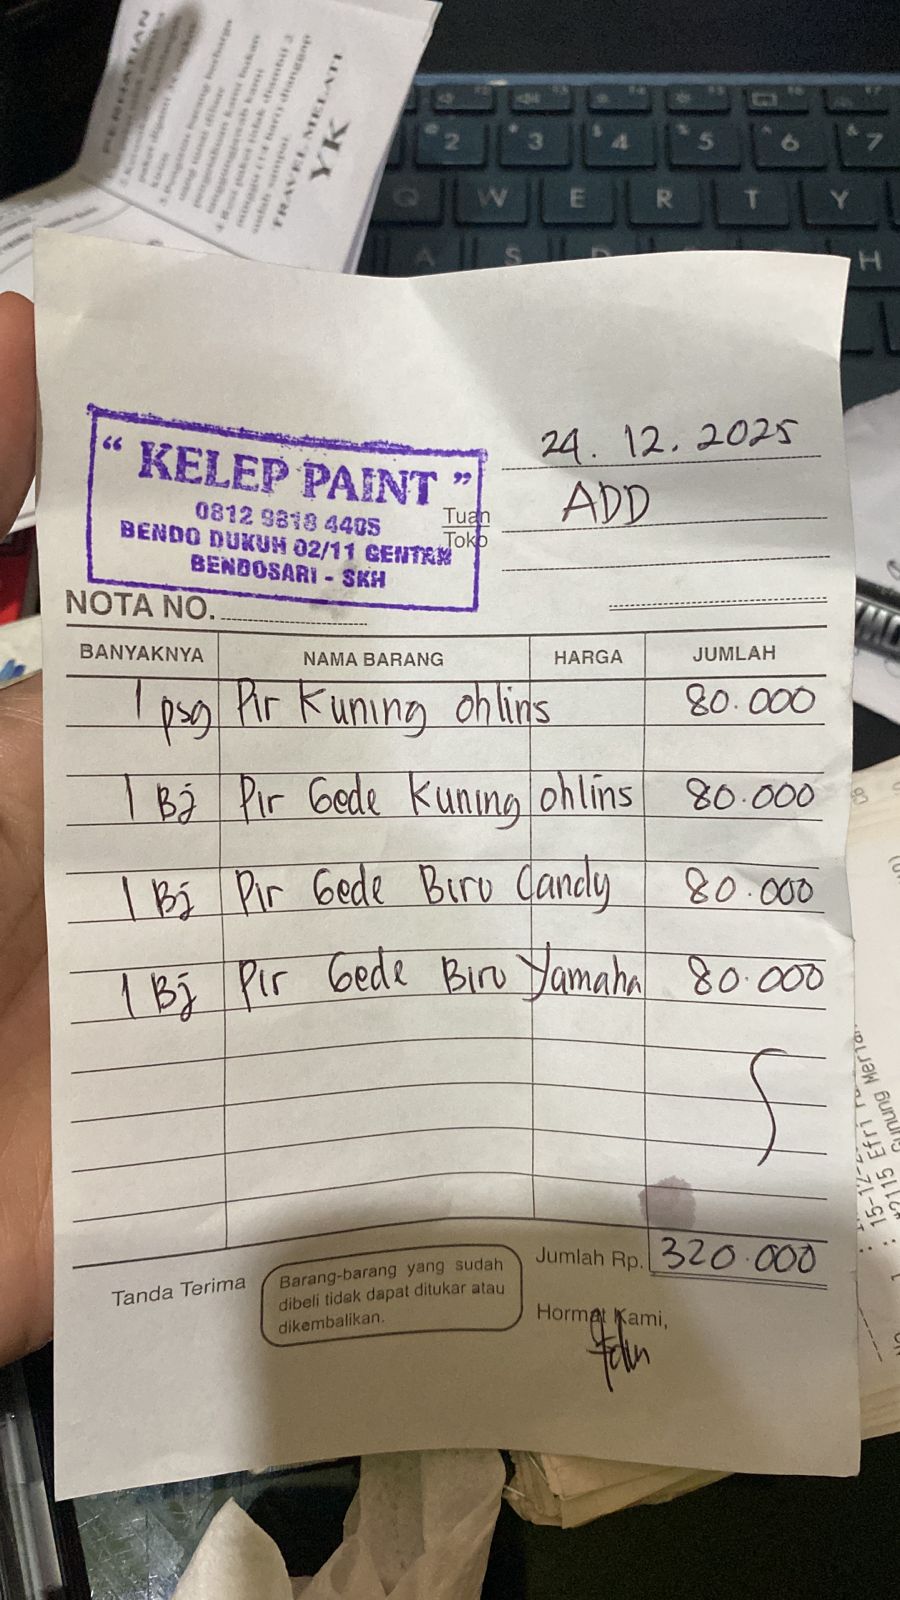 PERHATIAN
TRAVEL MELATI
YK
2 3 4 5 6 7
Q W E R T Y
A S D H
24. 12. 2025
" KELEP PAINT "
0812 9818 4405
BENDO DUKUH 02/11 GENTAN
BENDOSARI - SKH
Tuan
Toko
ADD
NOTA NO.
BANYAKNYA NAMA BARANG HARGA JUMLAH
1 psg Pir Kuning ohlins 80.000
1 Bj Pir Gede Kuning ohlins 80.000
1 Bj Pir Gede Biru Candy 80.000
1 Bj Pir Gede Biru Yamaha 80.000
Jumlah Rp. 320.000
Tanda Terima
Barang-barang yang sudah
dibeli tidak dapat ditukar atau
dikembalikan.
Hormat Kami,